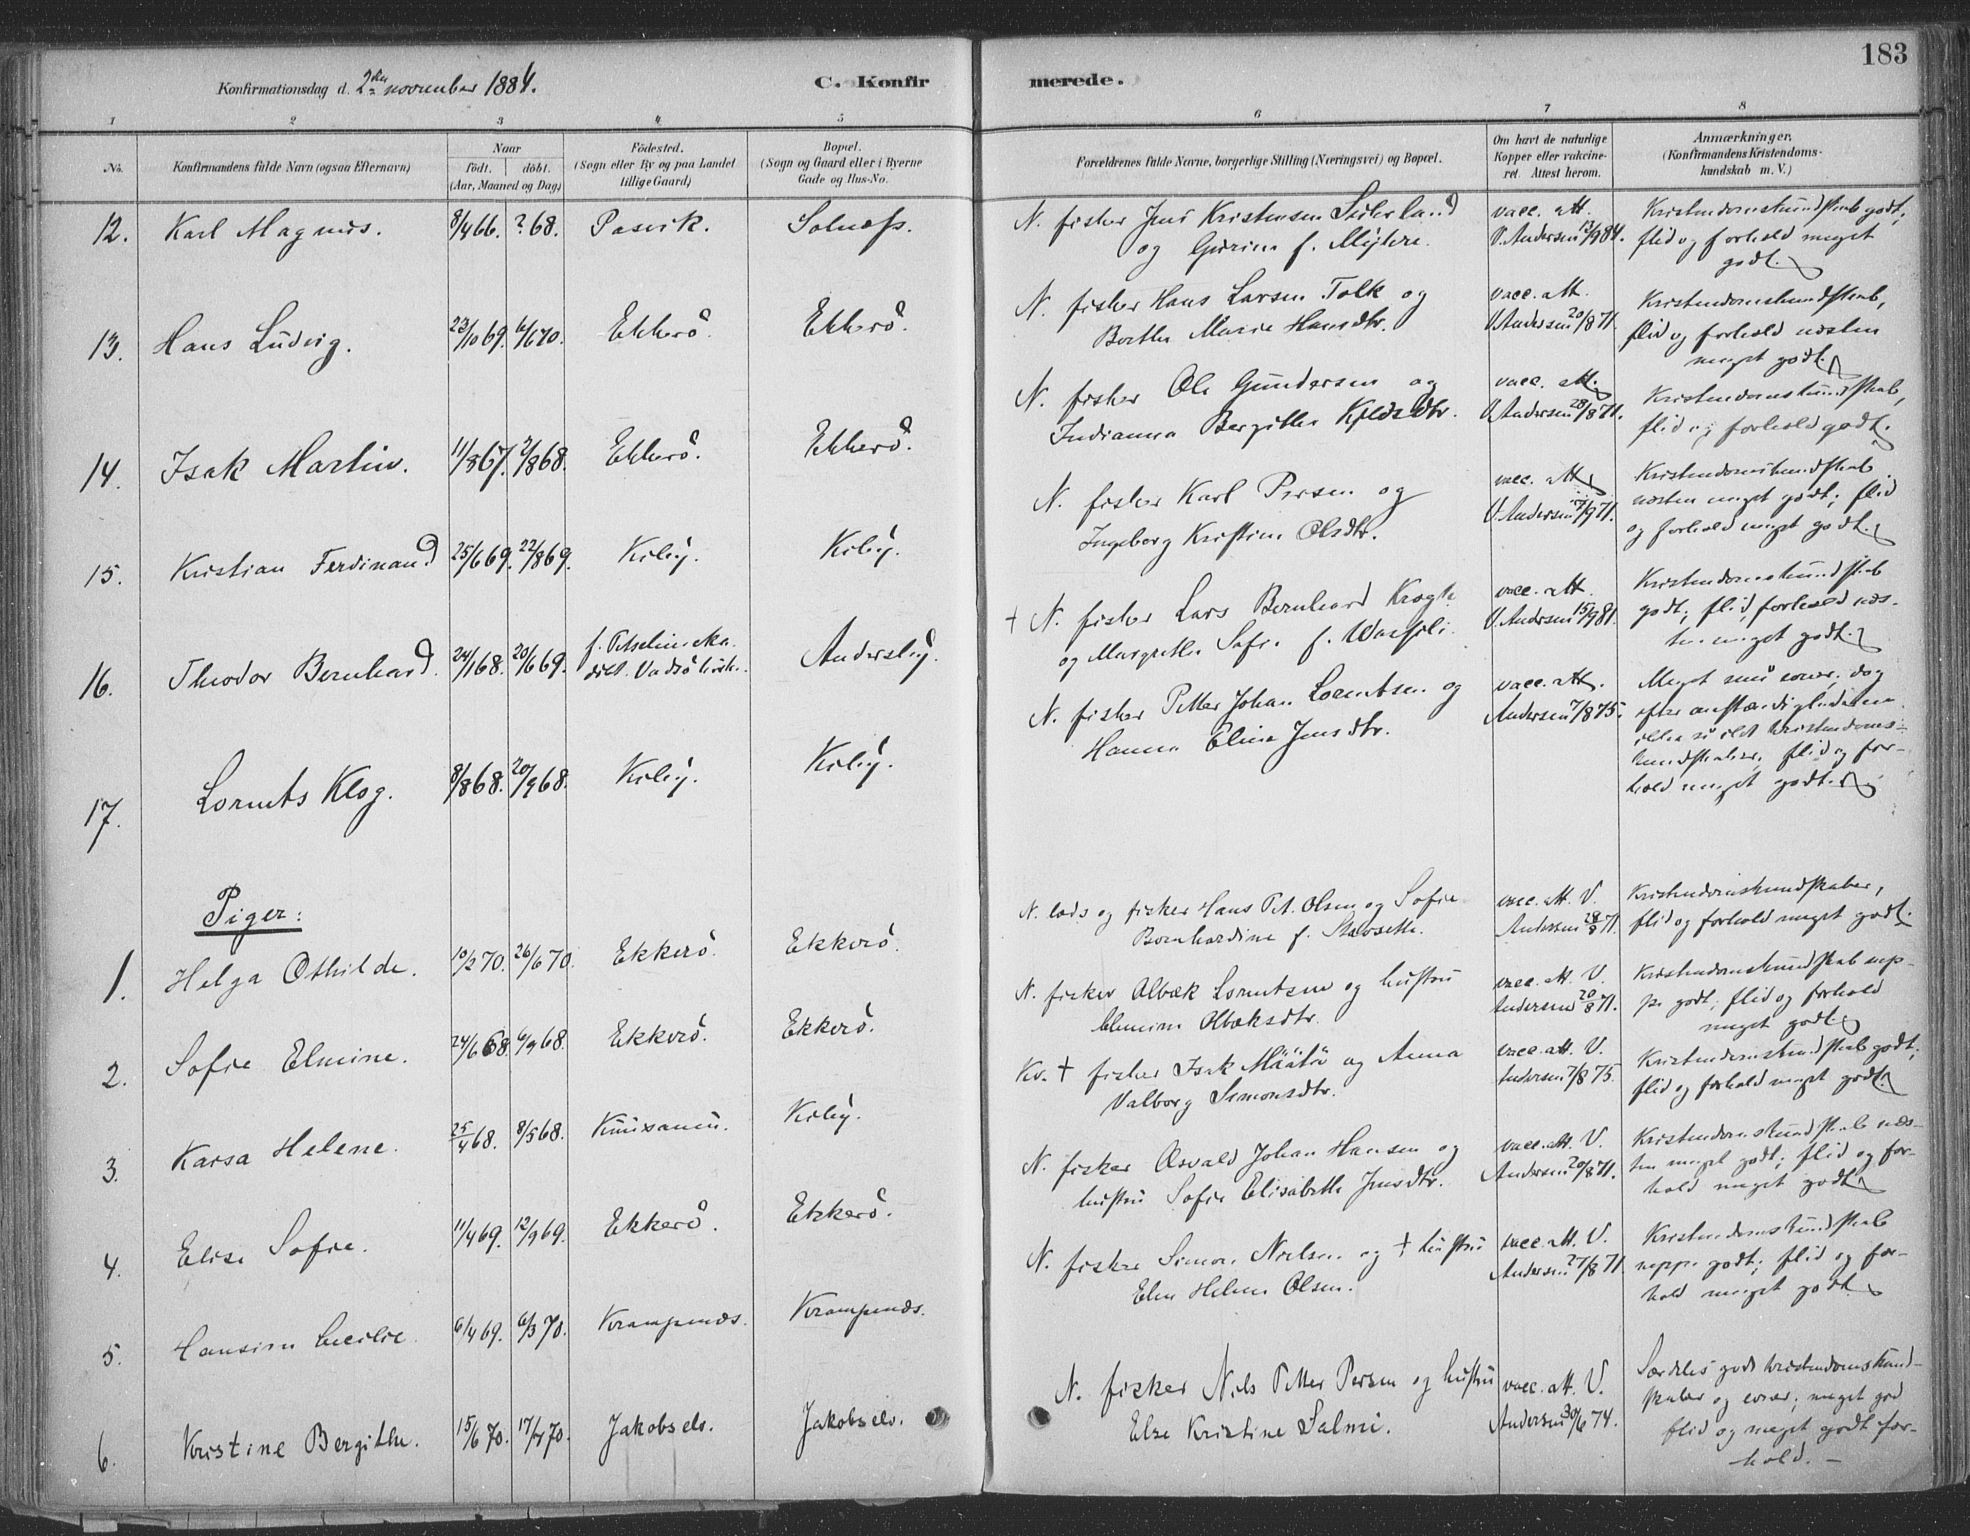 183
Konfirmationsdag d. 2den november 1884.
C. Konfirmerede.
1 2 3 4 5 6 7 8
No.
Konfirmandens fulde Navn (ogsaa Efternavn)
Naar
födt. döbt.
(Aar, Maaned og Dag)
Födested.
(Sogn eller By og paa Landet
tillige Gaard)
Bopæl.
(Sogn og Gaard eller i Byerne
Gade og Hus-No.
Forældrenes fulde Navne, borgerlige Stilling (Næringsvei) og Bopæl.
Om havt de naturlige
Kopper eller vakcine-
ret. Attest herom.
Anmærkninger.
(Konfirmandens Kristendoms-
kundskab m. V.)
12. Karl Magnus. 8/4 66. ? 68. Pasvik. Solnæss.
N. fisker Jens Kristensen Siderland
og Gurine f. Mijhre.
vacc. att.
V. Andersen 13/9 84.
Kristendomskundskab godt;
flid og forhold meget
godt.
13. Hans Ludvig. 23/10 69. 6/6 70. Ekkerö. Ekkerö.
N. fisker Hans Larsen Tolk og
Berthe Marie Hansdtr.
vacc. att.
V. Andersen 20/8 71.
Kristendomskundskab,
flid og forhold næsten
meget godt.
14. Isak Martin. 11/8 67. 2/8 68. Ekkerö. Ekkerö.
N. fisker Ole Gundersen og
Indianna Bergitte Kjeldsdtr.
vacc. att.
V. Andersen 28/8 71.
Kristendomskundskab,
flid og forhold godt.
15. Kristian Ferdinand 25/6 69. 22/8 69. Kiby. Kiby.
N. fisker Karl Persen og
Ingeborg Kristine Olsdtr.
vacc. att.
V. Andersen 17/9 71.
Kristendomskundskab
næsten meget godt; flid
og forhold meget godt.
16. Theodor Bernhard. 24/1 68. 20/6 69. Andersby.
† N. fisker Lars Bernhard Krogh
og Margrethe Sofie f. Wasseli.
vacc. att.
V. Andersen 15/9 81.
Kristendomskundskab
godt; flid, forhold næs-
ten meget godt.
17. Lorents Klog. 8/8 68. 20/9 68. Kiby. Kiby.
N. fisker Petter Johan Lorentsen og
Hanna Eline Jensdtr.
vacc. att.
Andersen 7/8 75.
Meget små evner; dog
efter omstændighederne
ikke så ilde kristendoms-
kundskaber, flid og for-
hold meget godt.
Piger:
1. Helga Othilde. 10/2 70. 26/6 70. Ekkerö. Ekkerö.
N. lods og fisker Hans Pet. Olsen og Sofie
Bernhardine f. Stavseth.
vacc. att. V.
Andersen 28/8 71.
Kristendomskundskaber,
flid og forhold meget godt.
2. Sofie Elmine. 24/6 68. 6/9 68. Ekkerö. Ekkerö.
N. fisker Albæk Lorentsen og hustru
Elmine Albæksdtr.
vacc. att. V.
Andersen 20/8 71.
Kristendomskundskab nep-
pe godt; flid og forhold
meget godt.
3. Karsa Helene. 25/4 68. 8/5 68. Kiby.
Kv. † fisker Isak Määtö og Anna
Valborg Simonsdtr.
vacc. att. V.
Andersen 7/8 75.
Kristendomskundskab godt;
flid og forhold meget godt.
4. Elise Sofie. 11/4 69. 12/9 69. Ekkerö. Ekkerö.
N. fisker Osvald Johan Hansen og
hustru Sofie Elisabeth Jensdtr.
vacc. att. V.
Andersen 20/8 71.
Kristendomskundskab næs-
ten meget godt; flid og for-
hold meget godt.
5. Hansine Cecilie 6/4 69. 6/3 70. Krampenæs. Krampenæs.
N. fisker Simon Nielsen og † hustru
Elen Helene Olsen.
vacc. att. V.
Andersen 27/8 71
Kristendomskundskab
neppe godt; flid og for-
hold meget godt.
6. Kristine Bergithe. 15/6 70. 17/7 70. Jakobselv. Jakobselv.
N. fisker Nils Petter Persen og hustru
Else Kristine Salmi.
vacc. att. V.
Andersen 30/6 74.
Særdeles gode kristendomskund-
skaber og evner; meget god
flid og meget godt for-
hold. —